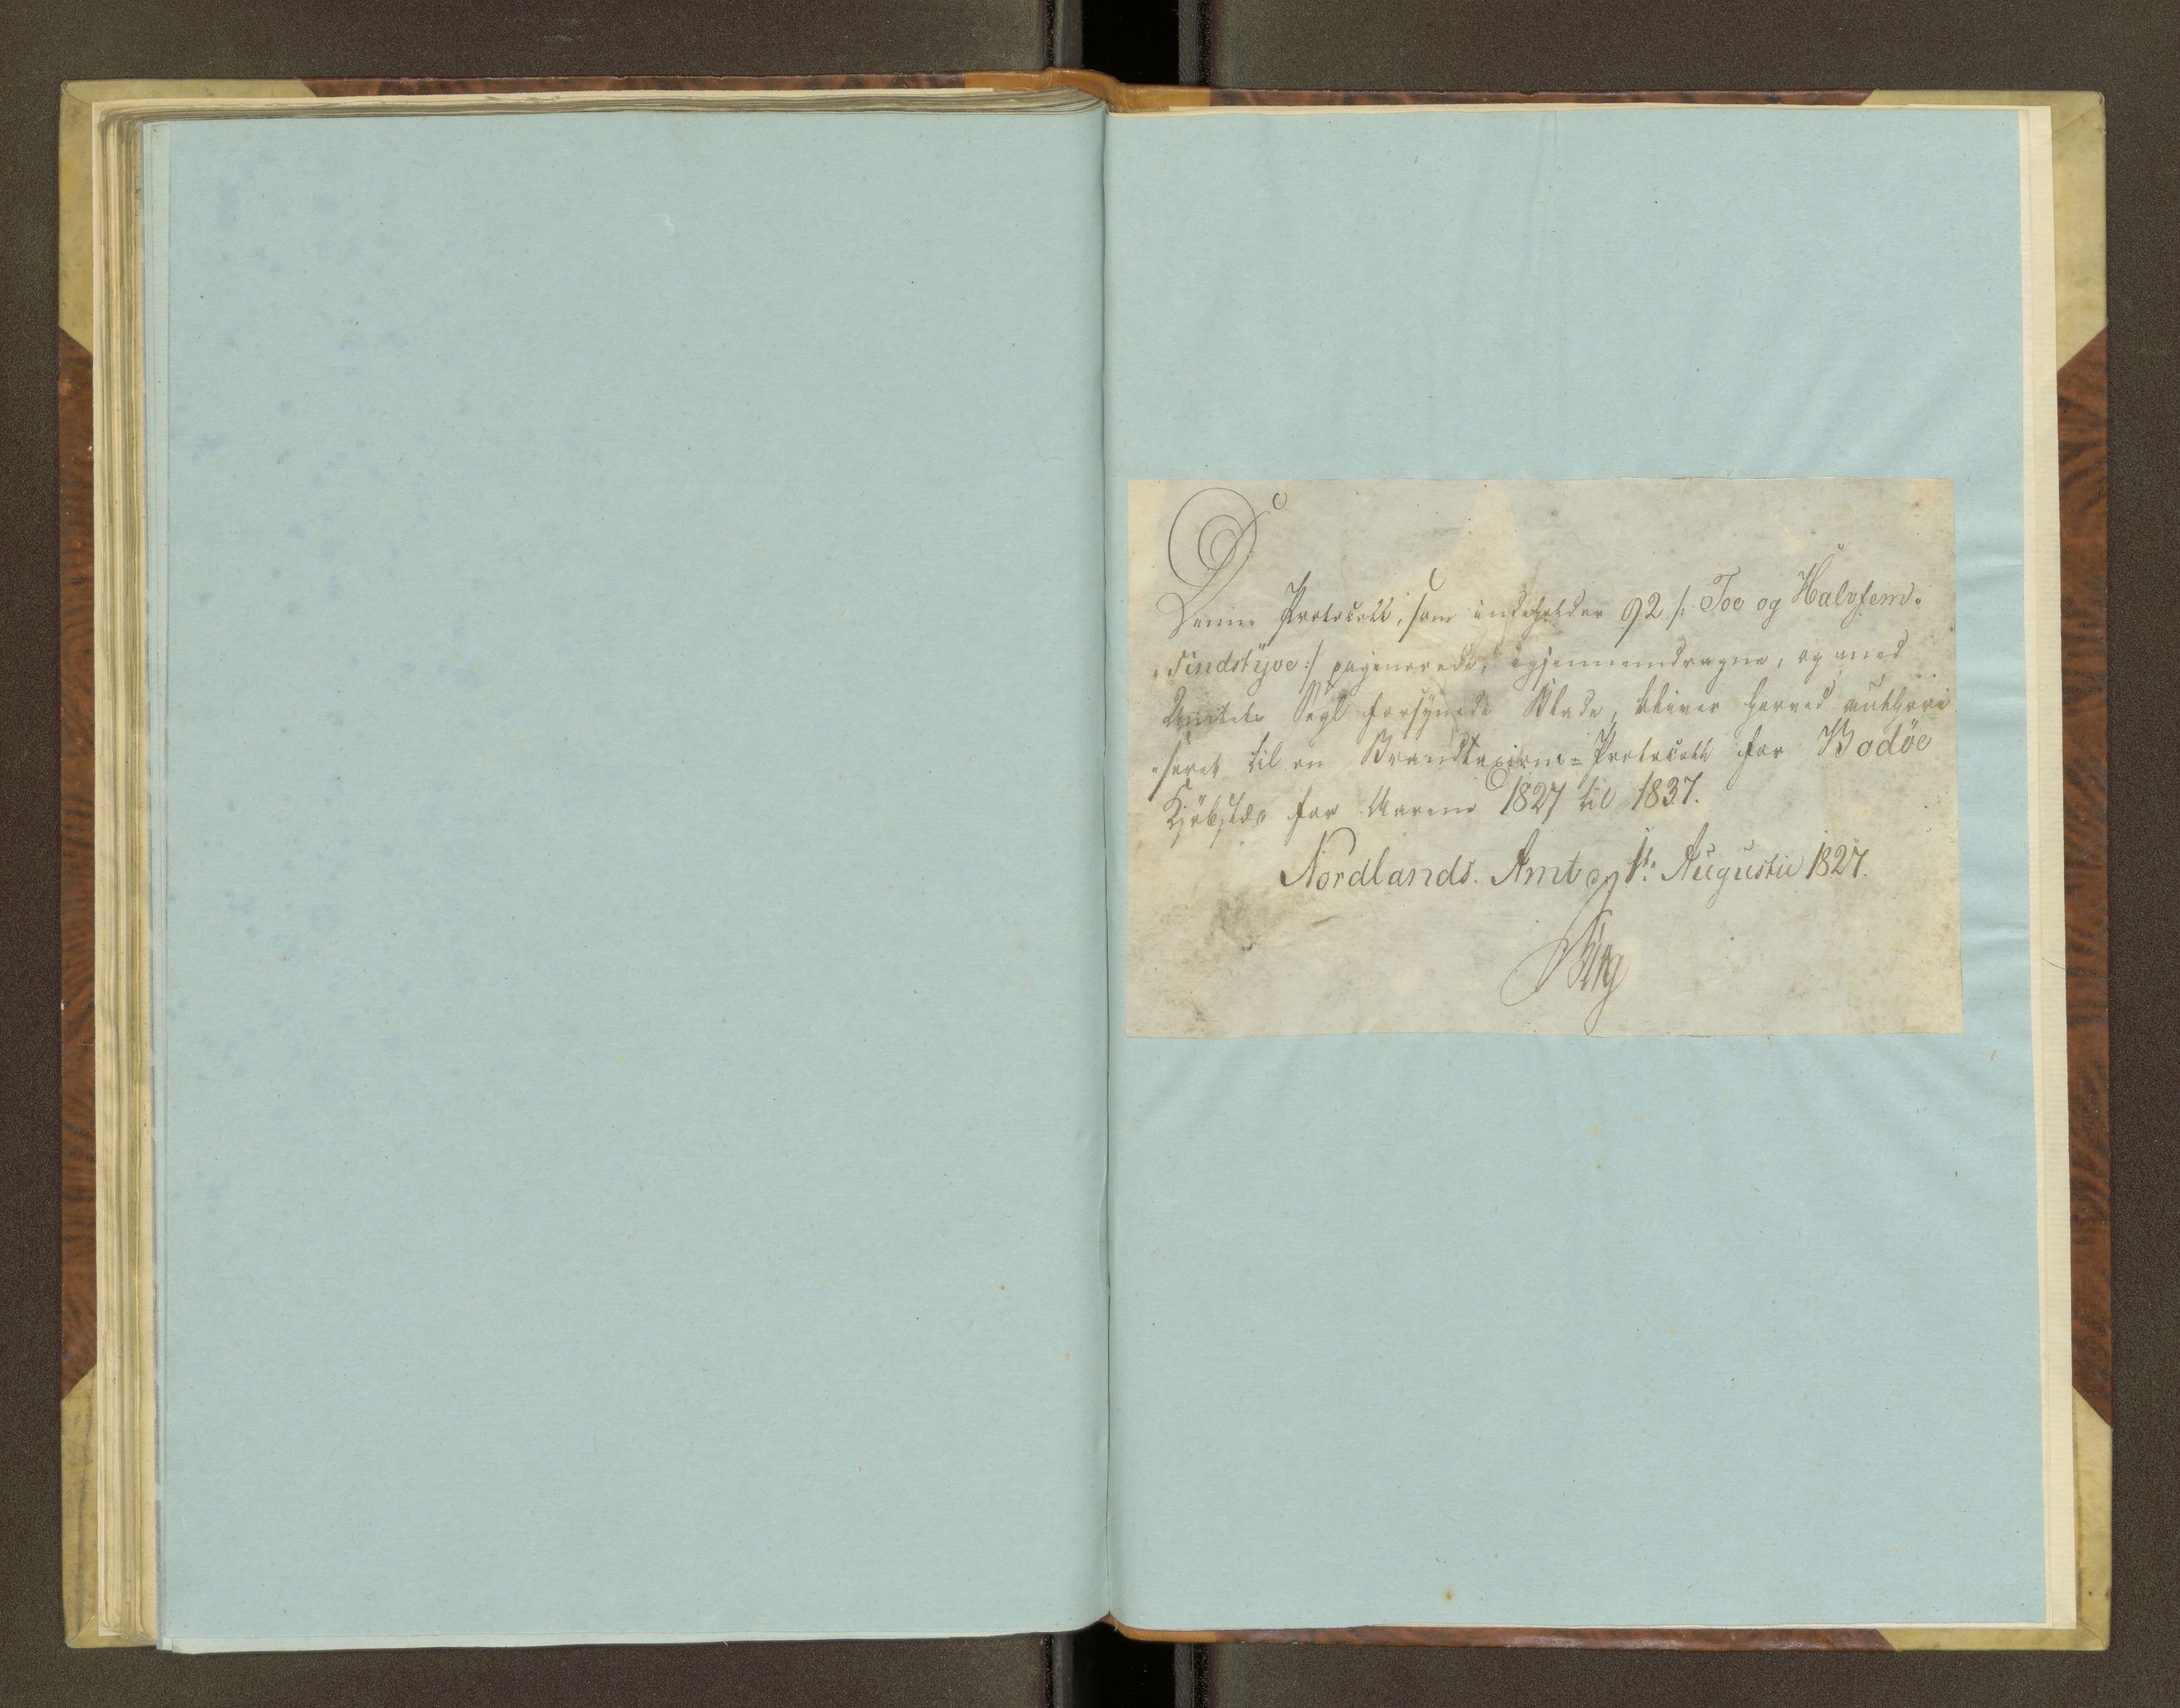 Denne Protocoll, som indeholder 92 /: Toe og Halvfem-
-sindstÿve :/ paginerede, igjennemdragne, og med
Amtets Segl forsÿnede Blade, bliver herved authori
-seret til en Brandtaxions=Protocoll for Bodöe
Kjöbstæd for Aarene 1827 til 1837.
Nordlands. Amt d. 1te Augusti 1827.